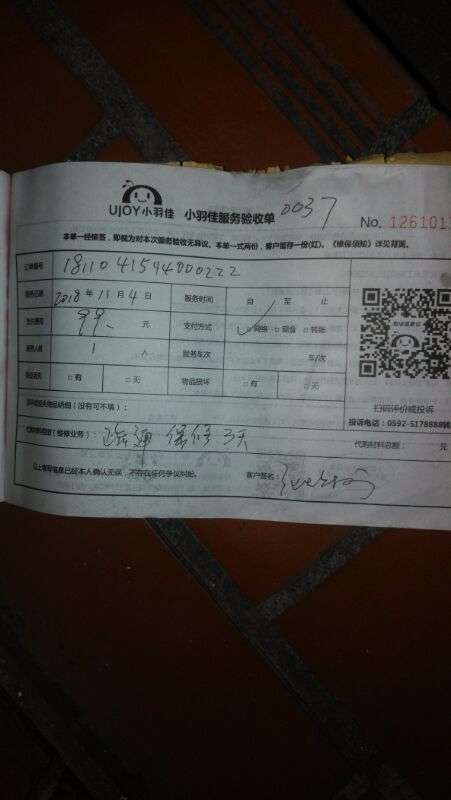 UJOY小羽佳 小羽佳服务验收单 0037
No. 126101
本单一经接签，即视为对本次服务验收无异议。本单一式两份，客户留存一份(红)。《维保须知》详见背面。
订单编号 1811041544000222
服务日期 2018 年 11 月 4 日 服务时间 自 至 止
支付费用 99. 元 支付方式 ✓□网络 □现金 □转账
服务人数 1 人 服务车次 车/次
物品丢失 □有 □无 物品损坏 □有 □无
扫码评价或投诉
损坏或丢失物品明细（没有可不填）：
投诉电话：0592-5178888转
代购材料明细（维修业务）： 疏通 保修 3天 代购材料总额： 元
以上填写信息已经本人确认无误，不存在任何争议纠纷。 客户签名：